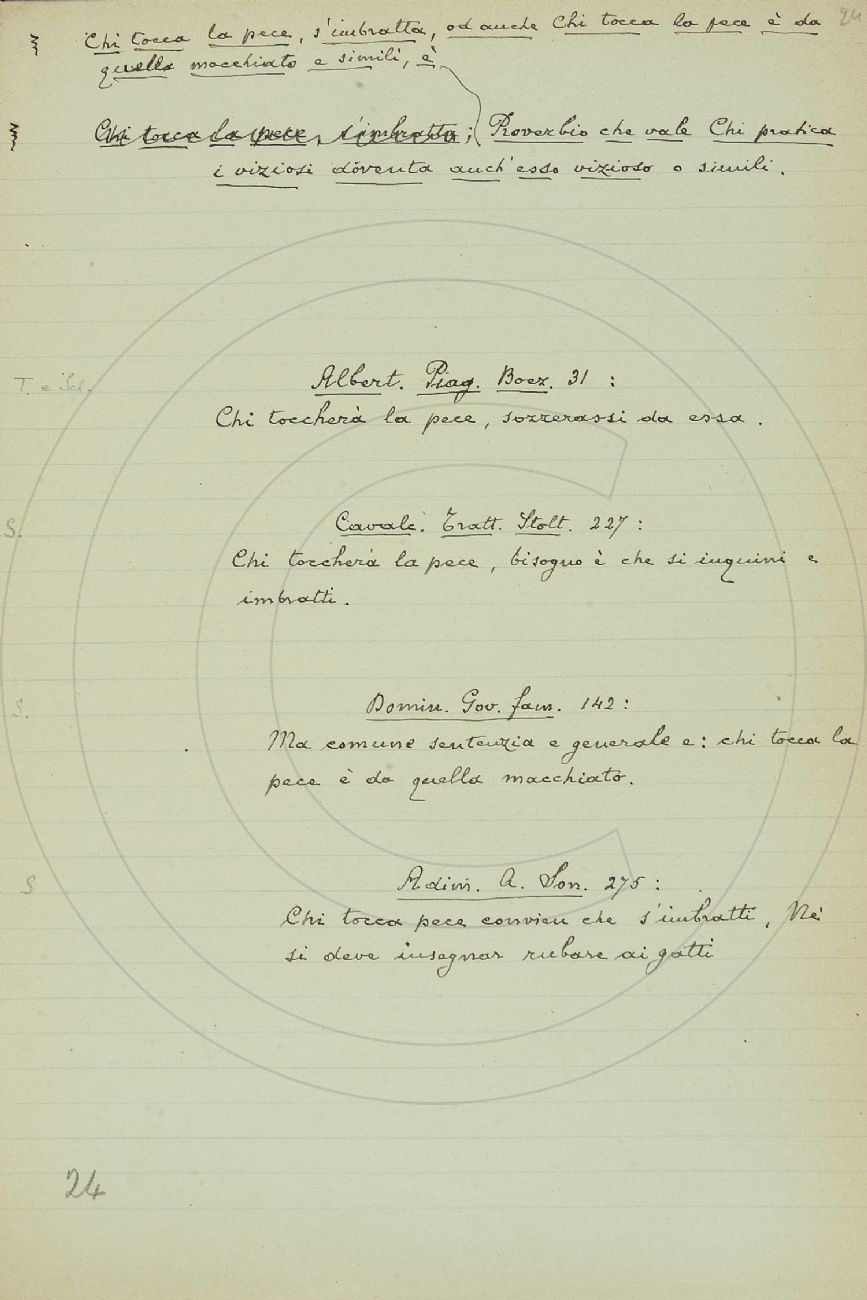 24
Chi tocca la pece, s'imbratta, od anche Chi tocca la pece è da
quella macchiato e simili, è
Chi tocca la pece, s'imbratta; Proverbio che vale Chi pratica
i viziosi doventa anch'esso vizioso o simili.
T. e Scl.
Albert. Piag. Boez. 31 :
Chi toccherà la pece, sozzerassi da essa.
S.
Cavalc. Tratt. Stolt. 227 :
Chi toccherà la pece, bisogno è che si inquini e
imbratti.
S.
Domin. Gov. fam. 142 :
Ma comune sentenzia e generale e: chi tocca la
pece è da quella macchiato.
S
Adim. A. Son. 275 :
Chi tocca pece convien che s'imbratti, Nè
si deve insegnar rubare ai gatti
24